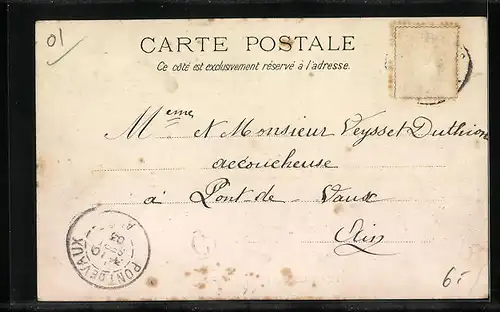 01
CARTE POSTALE
Ce côté est exclusivement réservé à l'adresse.
Meme et Monsieur Veysset Duthion
accoucheuse
à Pont-de-Vaux
Ain
PONT DE VAUX
03
6-